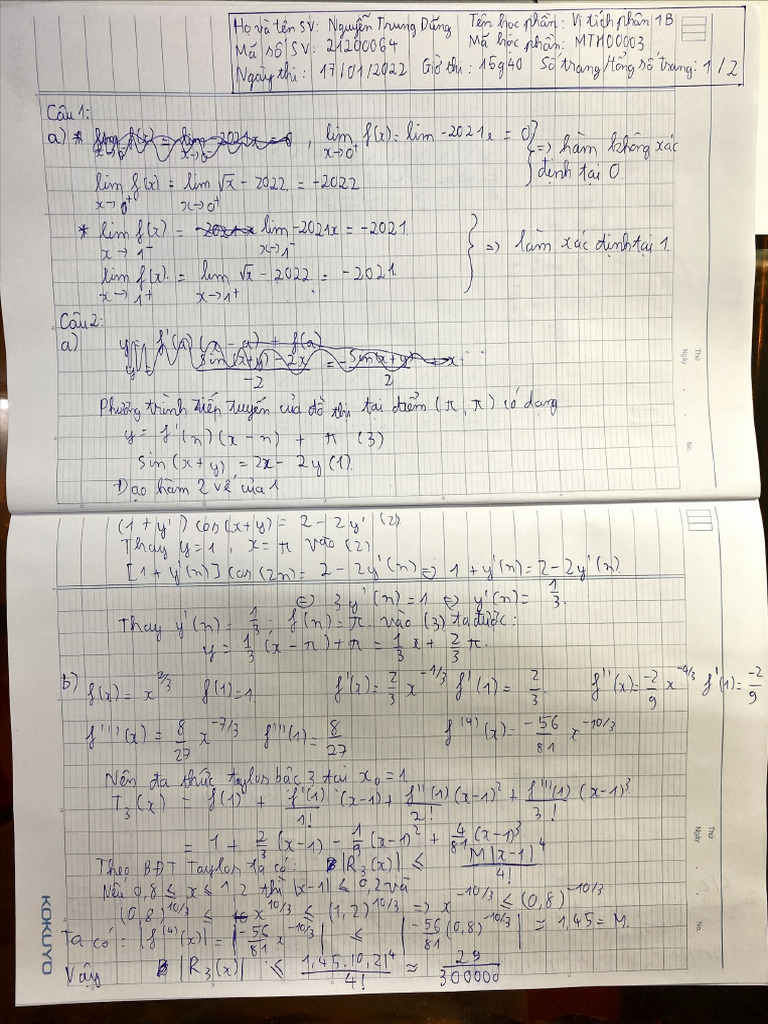 Họ và tên SV: Nguyễn Trung Dũng Tên học phần: Vi tích phân 1B
Mã số SV: 21200064 Mã học phần: MTH00003
Ngày thi: 17/01/2022 Giờ thi: 15g40 Số trang/Tổng số trang: 1/2
Câu 1:
a) * , lim x→0⁺ f(x) = lim -2021x = 0
lim x→0⁺ f(x) = lim x→0⁺ √x - 2022 = -2022 } => hàm không xác định tại 0.
* lim x→1⁻ f(x) = lim x→1⁻ -2021x = -2021
lim x→1⁺ f(x) = lim x→1⁺ √x - 2022 = -2021 } => hàm xác định tại 1.
Câu 2:
a)
Phương trình tiếp tuyến của đồ thị tại điểm (π, π) có dạng
y = f'(π)(x - π) + π (3)
sin(x+y) = 2x - 2y (1)
Đạo hàm 2 vế của 1
(1 + y') cos(x+y) = 2 - 2y' (2)
Thay y=1, x=π vào (2)
[1 + y'(π)] cos(2π) = 2 - 2y'(π) <=> 1 + y'(π) = 2 - 2y'(π)
<=> 3y'(π) = 1 <=> y'(π) = 1/3.
Thay y'(π) = 1/3; f(π) = π vào (3) ta được:
y = 1/3 (x - π) + π = 1/3 x + 2/3 π.
b) f(x) = x^2/3 f(1) = 1. f'(x) = 2/3 x^-1/3 f'(1) = 2/3. f''(x) = -2/9 x^-4/3 f'(1) = -2/9
f'''(x) = 8/27 x^-7/3 f'''(1) = 8/27 f^(4)(x) = -56/81 x^-10/3
Nên đa thức taylos bậc 3 tại x₀ = 1
T₃(x) = f(1) + f'(1)/1! (x-1) + f''(1)/2! (x-1)² + f'''(1)/3! (x-1)³
= 1 + 2/3 (x-1) - 1/9 (x-1)² + 4/81 (x-1)³
Theo BĐT Taylos ta có: |R₃(x)| ≤ M|x-1|⁴/4!
Nếu 0,8 ≤ x ≤ 1,2 thì |x-1| ≤ 0,2 và
(0,8)^10/3 ≤ x^10/3 ≤ (1,2)^10/3 => x^-10/3 ≤ (0,8)^-10/3
Ta có: |f^(4)(x)| = |-56/81 x^-10/3| ≤ |-56/81 (0,8)^-10/3| = 1,45 = M.
Vậy |R₃(x)| ≤ 1,45.|0,2|⁴/4! ≈ 29/300000
KOKUYO
Thứ
Ngày
No.
Thứ
Ngày
No.